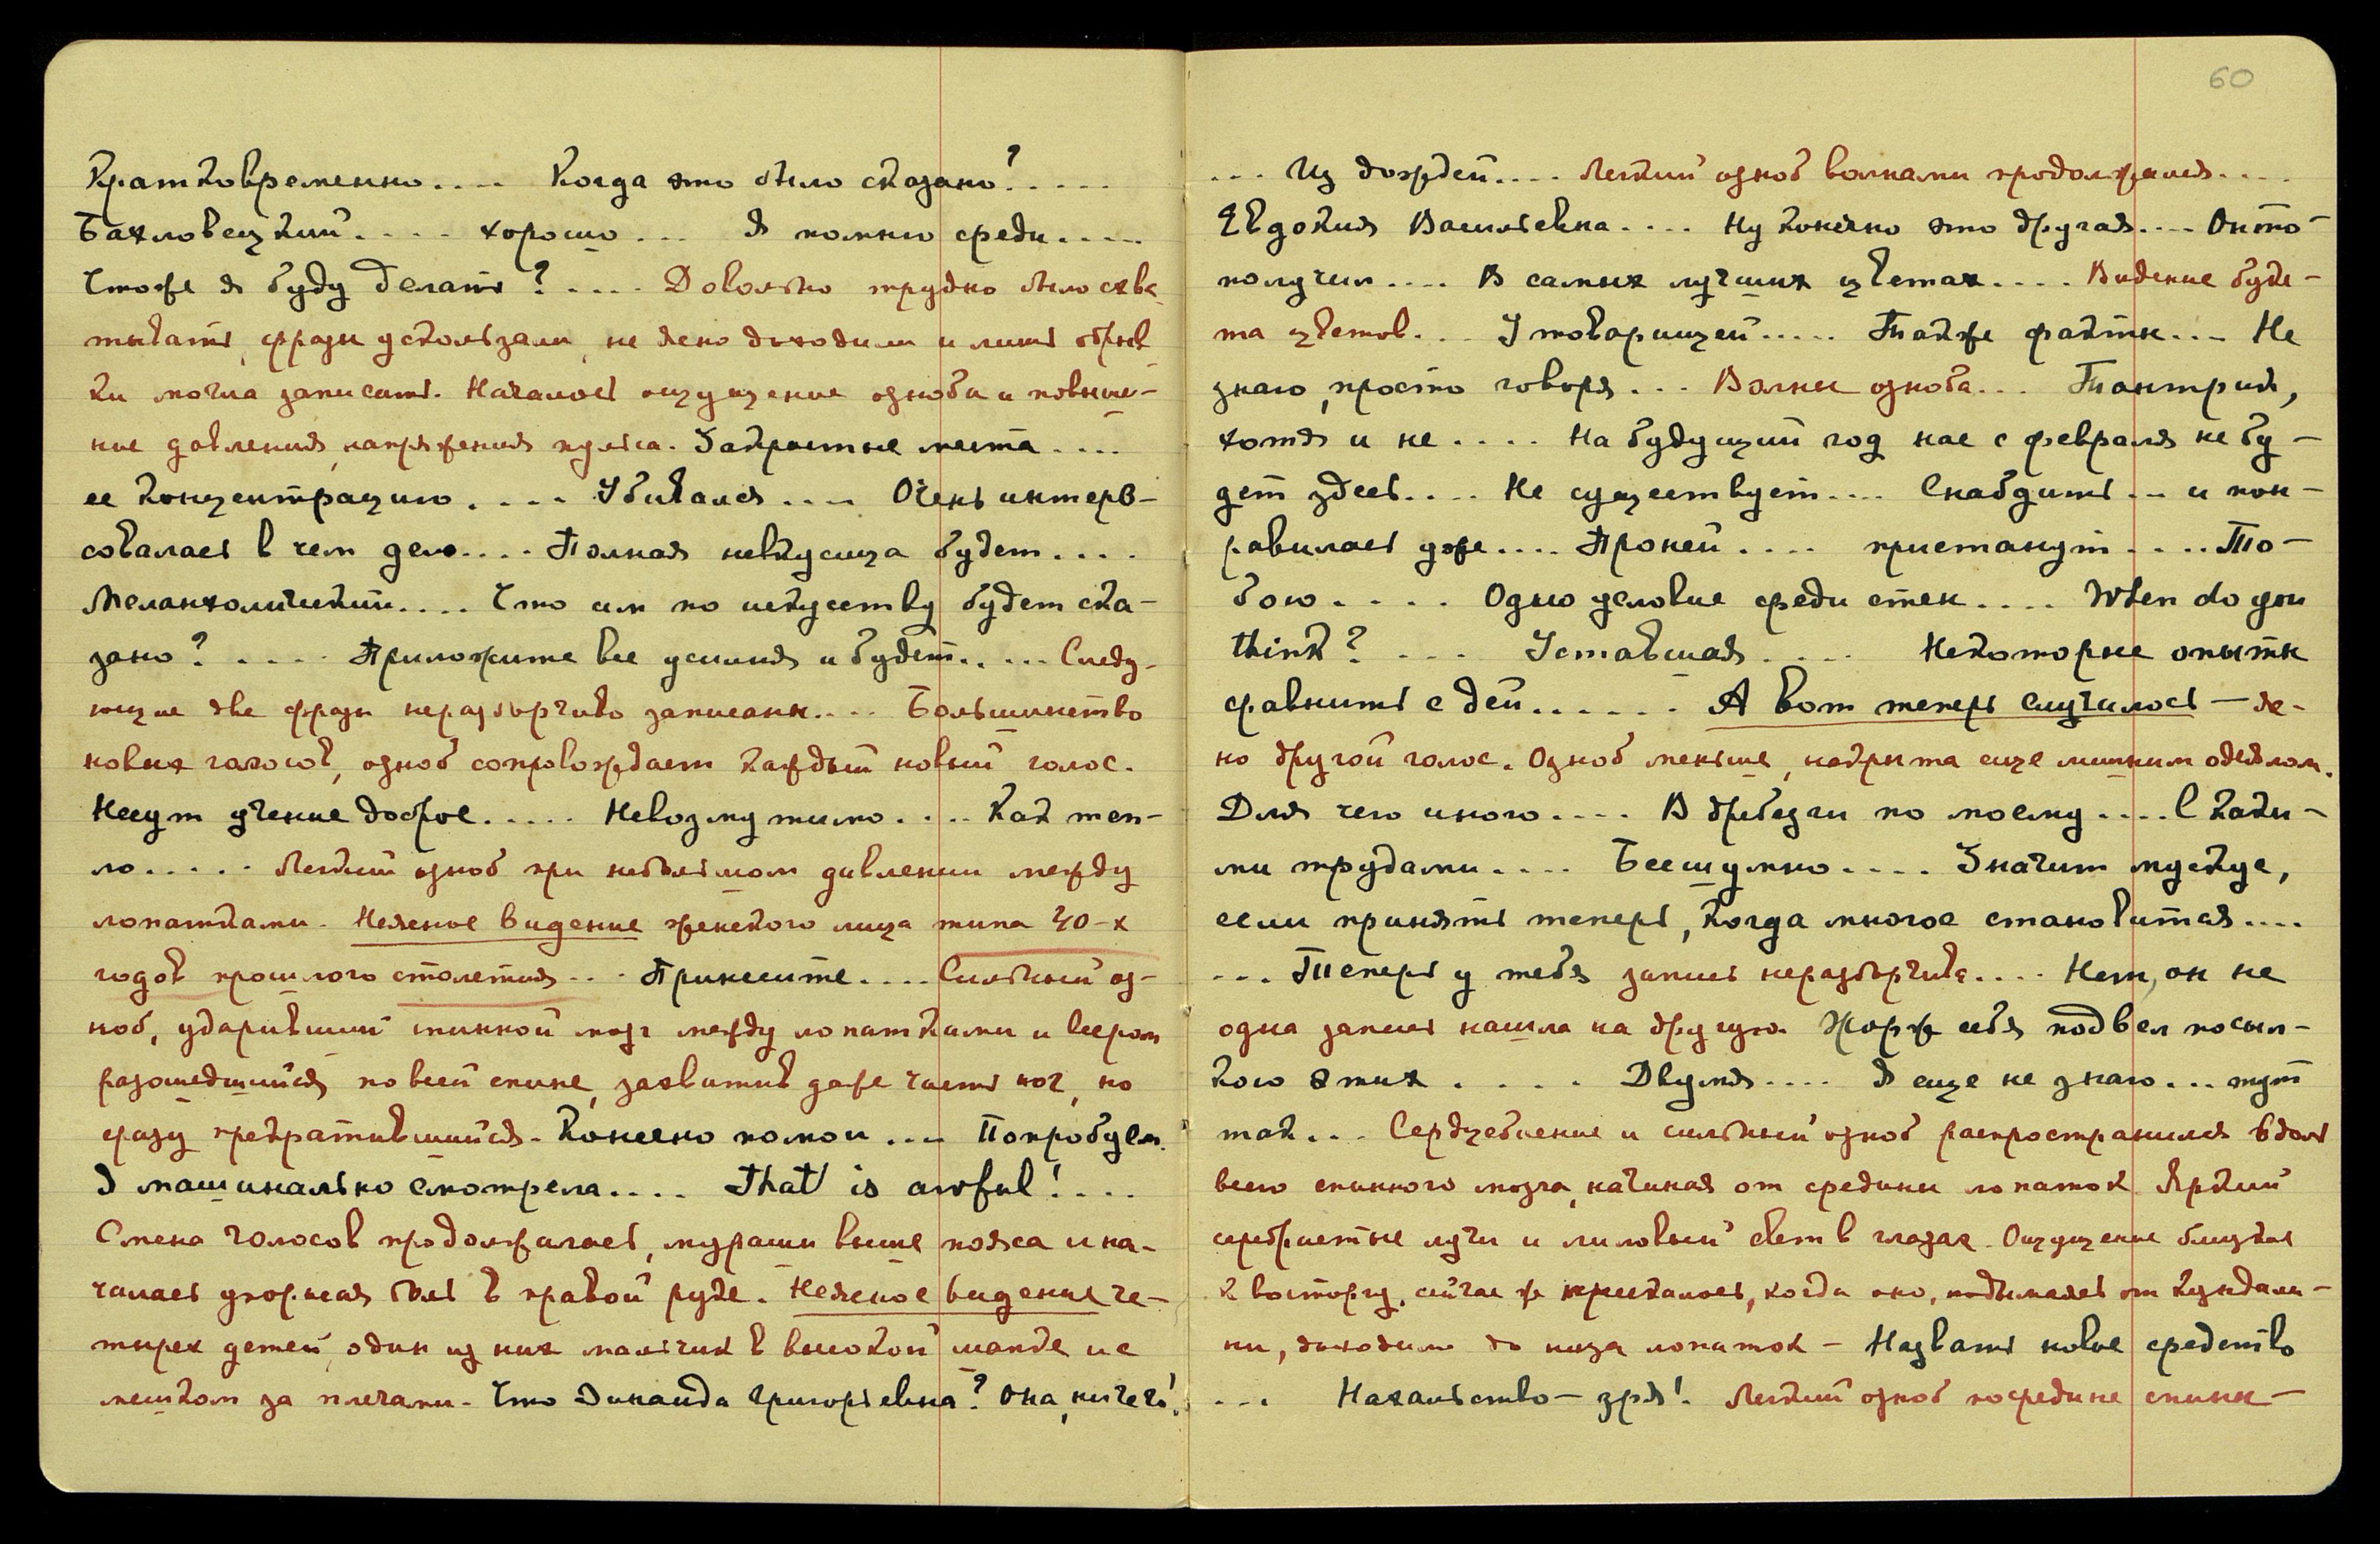 Кратковременно.... Когда это было сказано?.....
Бахловецкий.... хорошо... Я помню среди.....
Чтоже я буду делать?.... Довольно трудно было схва-
тывать, фразы ускользали, не ясно доходили и лишь обрыв
ки могла записать. Началось ощущение озноба и повыше-
ние давления, напряжения пульса. Закрытые места....
ее концентрацию.... Убивался.... Очень интере-
совалась в чем дело.... Полная невкусица будет....
Меланхолический.... Что им по искусству будет ска-
зано?.... Приложите все усилия и будет..... Следу-
ющие две фразы неразборчиво записаны.... Большинство
новых голосов, озноб сопровождает каждый новый голос.
Несут учение доброе..... Невозмутимо.... Как теп-
ло..... Легкий озноб при небольшом давлении между
лопатками. Неясное видение женского лица типа 40-х
годов прошлого столетия... Принесите.... Сильный оз-
ноб, ударивший спинной мозг между лопатками и веером
разошедшийся по всей спине, захватив даже часть ног, но
сразу прекратившийся. Конечно помои.... Попробуем.
Я машинально смотрела.... That is awful!....
Смена голосов продолжалась, мураши выше пояса и на-
чалась упорная боль в правой руке. Неясное видение че-
тырех детей, один из них мальчик в высокой шапке и с
мешком за плечами. Что Зинаида Григорьевна? Она, ничего!
60
... Из дождей.... Легкий озноб волнами продолжался....
Евдокия Васильевна.... Ну конечно это другая.... Он то
получил.... В самых лучших цветах.... Видение буке-
та цветов... У товарищей..... Также факты... Не
знаю, просто говоря... Волны озноба... Тантрия,
хотя и не.... На будущий год нас с февраля не бу-
дет здесь.... Не существует.... Снабдить... и пон-
равилась уже.... Проней.... пристанут.... То-
бою.... Одно условие среди стен.... When do you
think?.... Уставшая.... Некоторые опыты
сравнить с дей...... А вот теперь случилось — яс-
но другой голос. Озноб меньше, накрыта еще лишним одеялом.
Для чего иного.... В дребезги по моему.... С каки-
ми трудами.... Бесшумно.... Значит мускус,
если принять теперь, когда многое становится....
... Теперь у тебя запись неразборчива.... Нет, он не
одна запись нашла на другую. Жорж себя подвел посыл-
кою этих.... Двумя.... Я еще не знаю... тут
так... Сердцебиение и сильный озноб распространился вдоль
всего спинного мозга, начиная от средины лопаток. Яркий
серебристые лучи и лиловый свет в глазах. Ощущение близкия
к восторгу, сейчас же прекращалось, когда оно, подымаясь от кундали-
ни, доходило до низа лопаток — Назвать новое средство
... Нахальство — зря! Легкий озноб посредине спины —